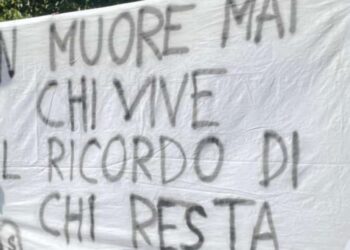 N MUORE MAI
CHI VIVE
L RICORDO DI
CHI RESTA